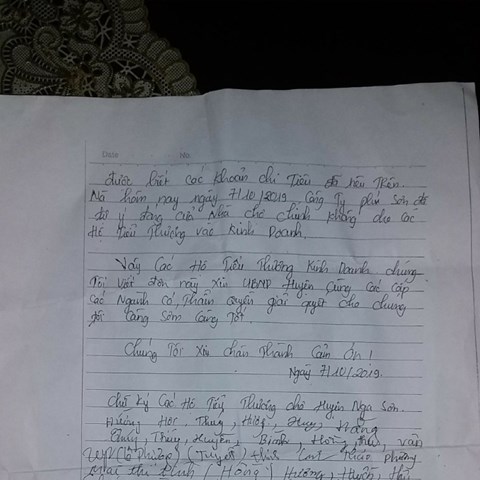 Date No.
được biết các khoản chi Tiêu đã nêu Trên.
Mà hôm nay ngày 7/10/2019. Công Ty phú Sơn đã
cửa Nhà chợ chính không cho các
Hộ Tiểu Thương vào Kinh Doanh.
Vậy Các Hộ Tiểu Thương Kinh Doanh chúng
Tôi viết đơn này xin UBND Huyện cùng các cấp
các Ngành có Thẩm quyền giải quyết cho chúng
tôi càng sớm càng Tốt
Chúng Tôi Xin chân Thành Cảm ơn!
Ngày 7/10/2019.
Chữ ký Các Hộ Tiểu Thương chợ Huyện Nga Sơn.
Hương Thuy, Hằng
Thúy, Huyền, Bình, vân
(Tuyết) phương
Mai thị (Hồng) Hương, Huyền,